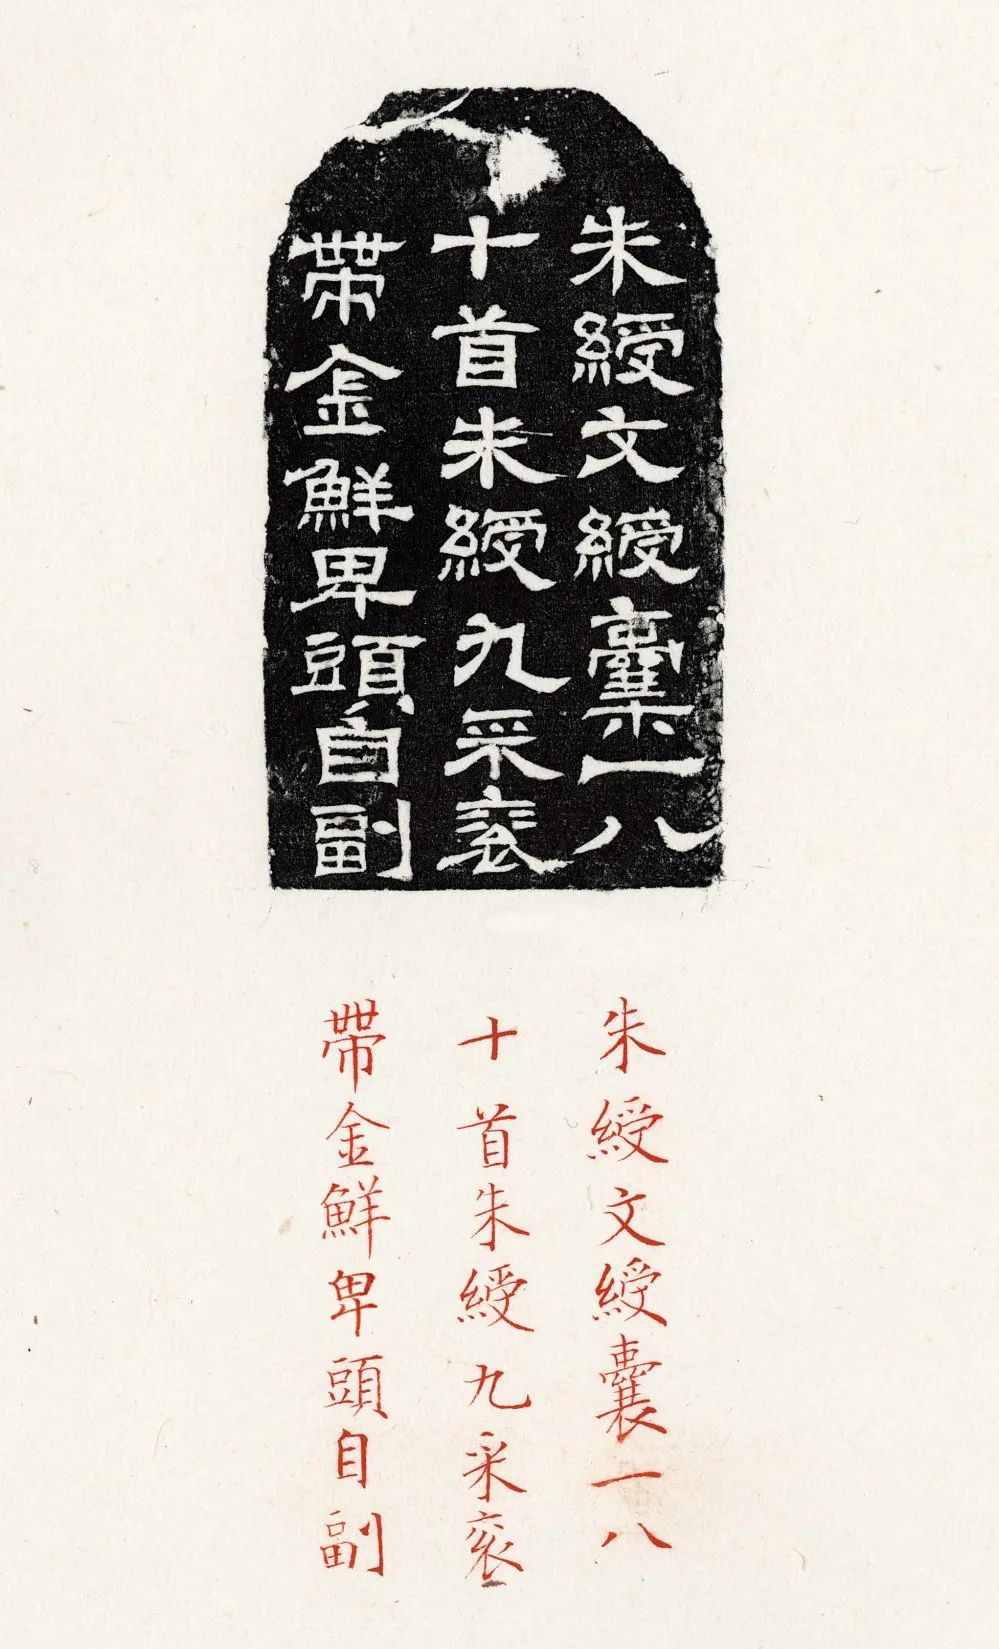 朱綬文綬囊一八
十首朱綬九采衮
帶金鮮卑頭自副
朱綬文綬囊一八
十首朱綬九采衮
帶金鮮卑頭自副